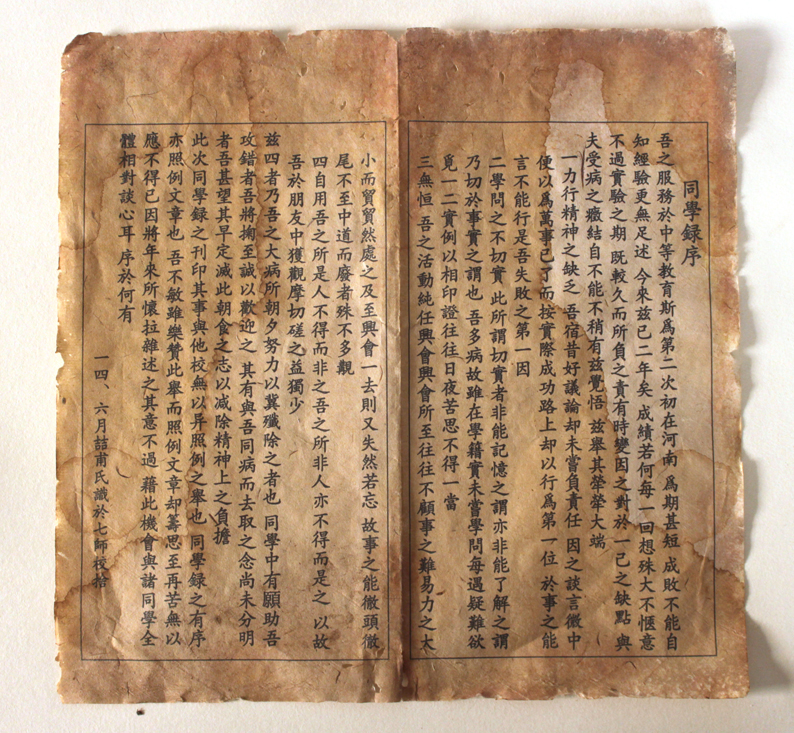 同學録序
吾之服務於中等教育斯爲第二次初在河南 爲期甚短 成敗不能自
知經驗更無足述 今來茲已二年矣 成績若何每一回想殊大不愜意
不過實驗之期 既較久而所負之責有時變因之對於一己之缺點 與
夫受病之癥結自不能不稍有茲覺悟 茲舉其犖犖大端
一力行精神之缺乏 吾宿昔好議論却未嘗負責任 因之談言微中
便以爲萬事已了而按實際成功路上却以行爲第一位 於事之能
言不能行是吾失敗之第一因
二學問之不切實 此所謂切實者非能記憶之謂亦非能了解之謂
乃切於事實之謂也 吾多病故雖在學籍實未嘗學問每遇疑難欲
覓一二實例以相印證往往日夜苦思不得一當
三無恒 吾之活動純任興會興會所至往往不顧事之難易力之大
小而貿貿然處之及至興會一去則又失然若忘 故事之能徹頭徹
尾不至中道而廢者殊不多觀
四自用吾之所是人不得而非之吾之所非人亦不得而是之 以故
吾於朋友中獲觀摩切磋之益獨少
茲四者乃吾之大病所朝夕努力以冀殲除之者也 同學中有願助吾
攻錯者吾將掬至誠以歡迎之 其有與吾同病而去取之念尚未分明
者吾甚望其早定滅此朝食之志以減除精神上之負擔
此次同學録之刊印其事與他校無以异照例之舉也 同學録之有序
亦照例文章也 吾不敏雖樂贊此舉而照例文章却籌思至再苦無以
應不得已因將年來所懷拉雜述之其意不過 藉此機會與諸同學全
體相對談心耳 序於何有
一四、六月詰甫氏識於七師校捨